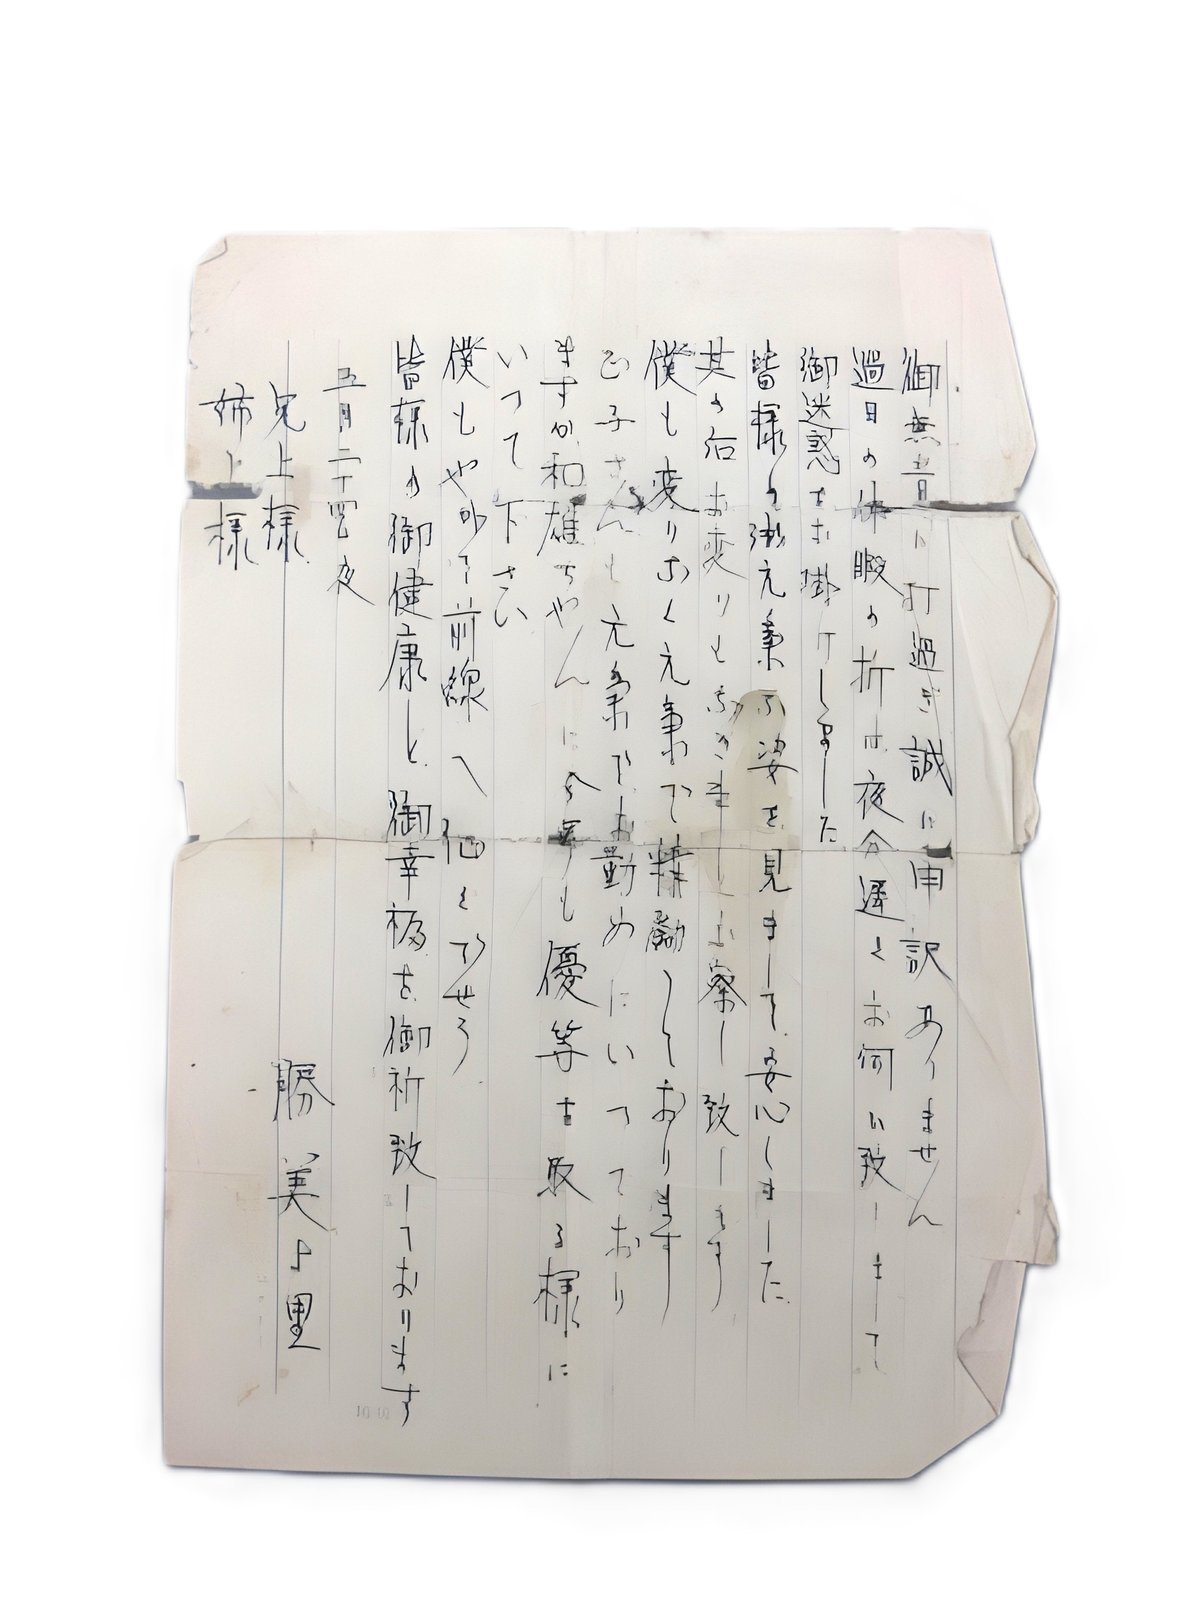 御無音に打過ぎ誠に申訳ありません
過日の休暇の折は夜分遅くお伺い致しまして
御迷惑をお掛けしました
皆様の御元気な姿を見まして安心しました
其の后お変りもなきましとお察し致します
僕も変りなく元気で精励しております
子さんも元気でお勤めにいっており
ますか和雄ちやんにも優等を取る様に
いつて下さい
僕もやがて前線へ行くでせう
皆様の御健康と御幸福を御祈致しております
五月二十四夜
勝美より
兄上様
姉上様